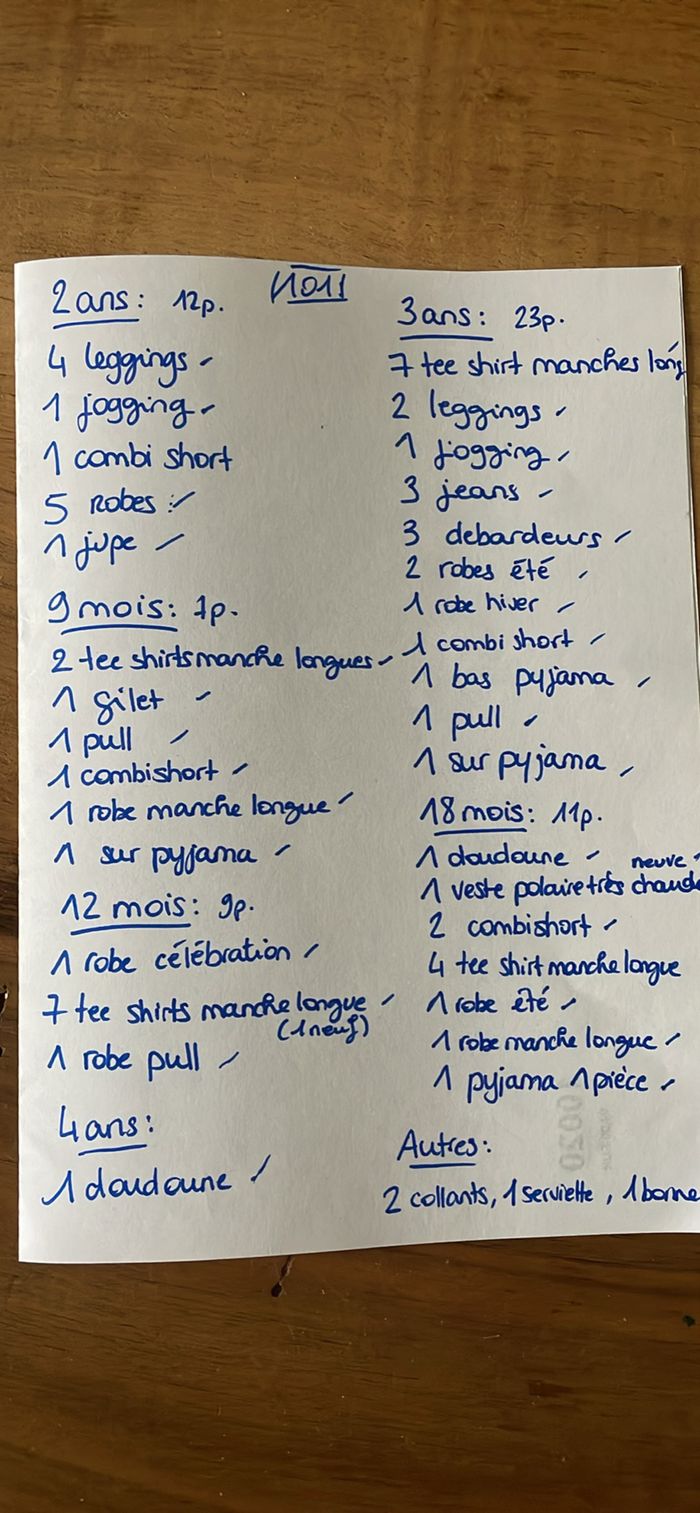 2 ans : 12p.
4 leggings
1 jogging
1 combi short
5 Robes :
1 jupe
9 mois : 7p.
2 tee shirts manche longues
1 gilet
1 pull
1 combishort
1 robe manche longue
1 sur pyjama
12 mois : 9p.
1 robe célébration
7 tee shirts manche longue
(1 neuf)
1 robe pull
4 ans :
1 doudoune
3 ans : 23p.
7 tee shirt manches long
2 leggings
1 jogging
3 jeans
3 debardeurs
2 robes été
1 robe hiver
1 combi short
1 bas pyjama
1 pull
1 sur pyjama
18 mois : 11p.
1 doudoune neuve
1 veste polaire très chaude
2 combishort
4 tee shirt manche longue
1 robe été
1 robe manche longue
1 pyjama 1 pièce
Autres :
2 collants, 1 serviette, 1 bonne